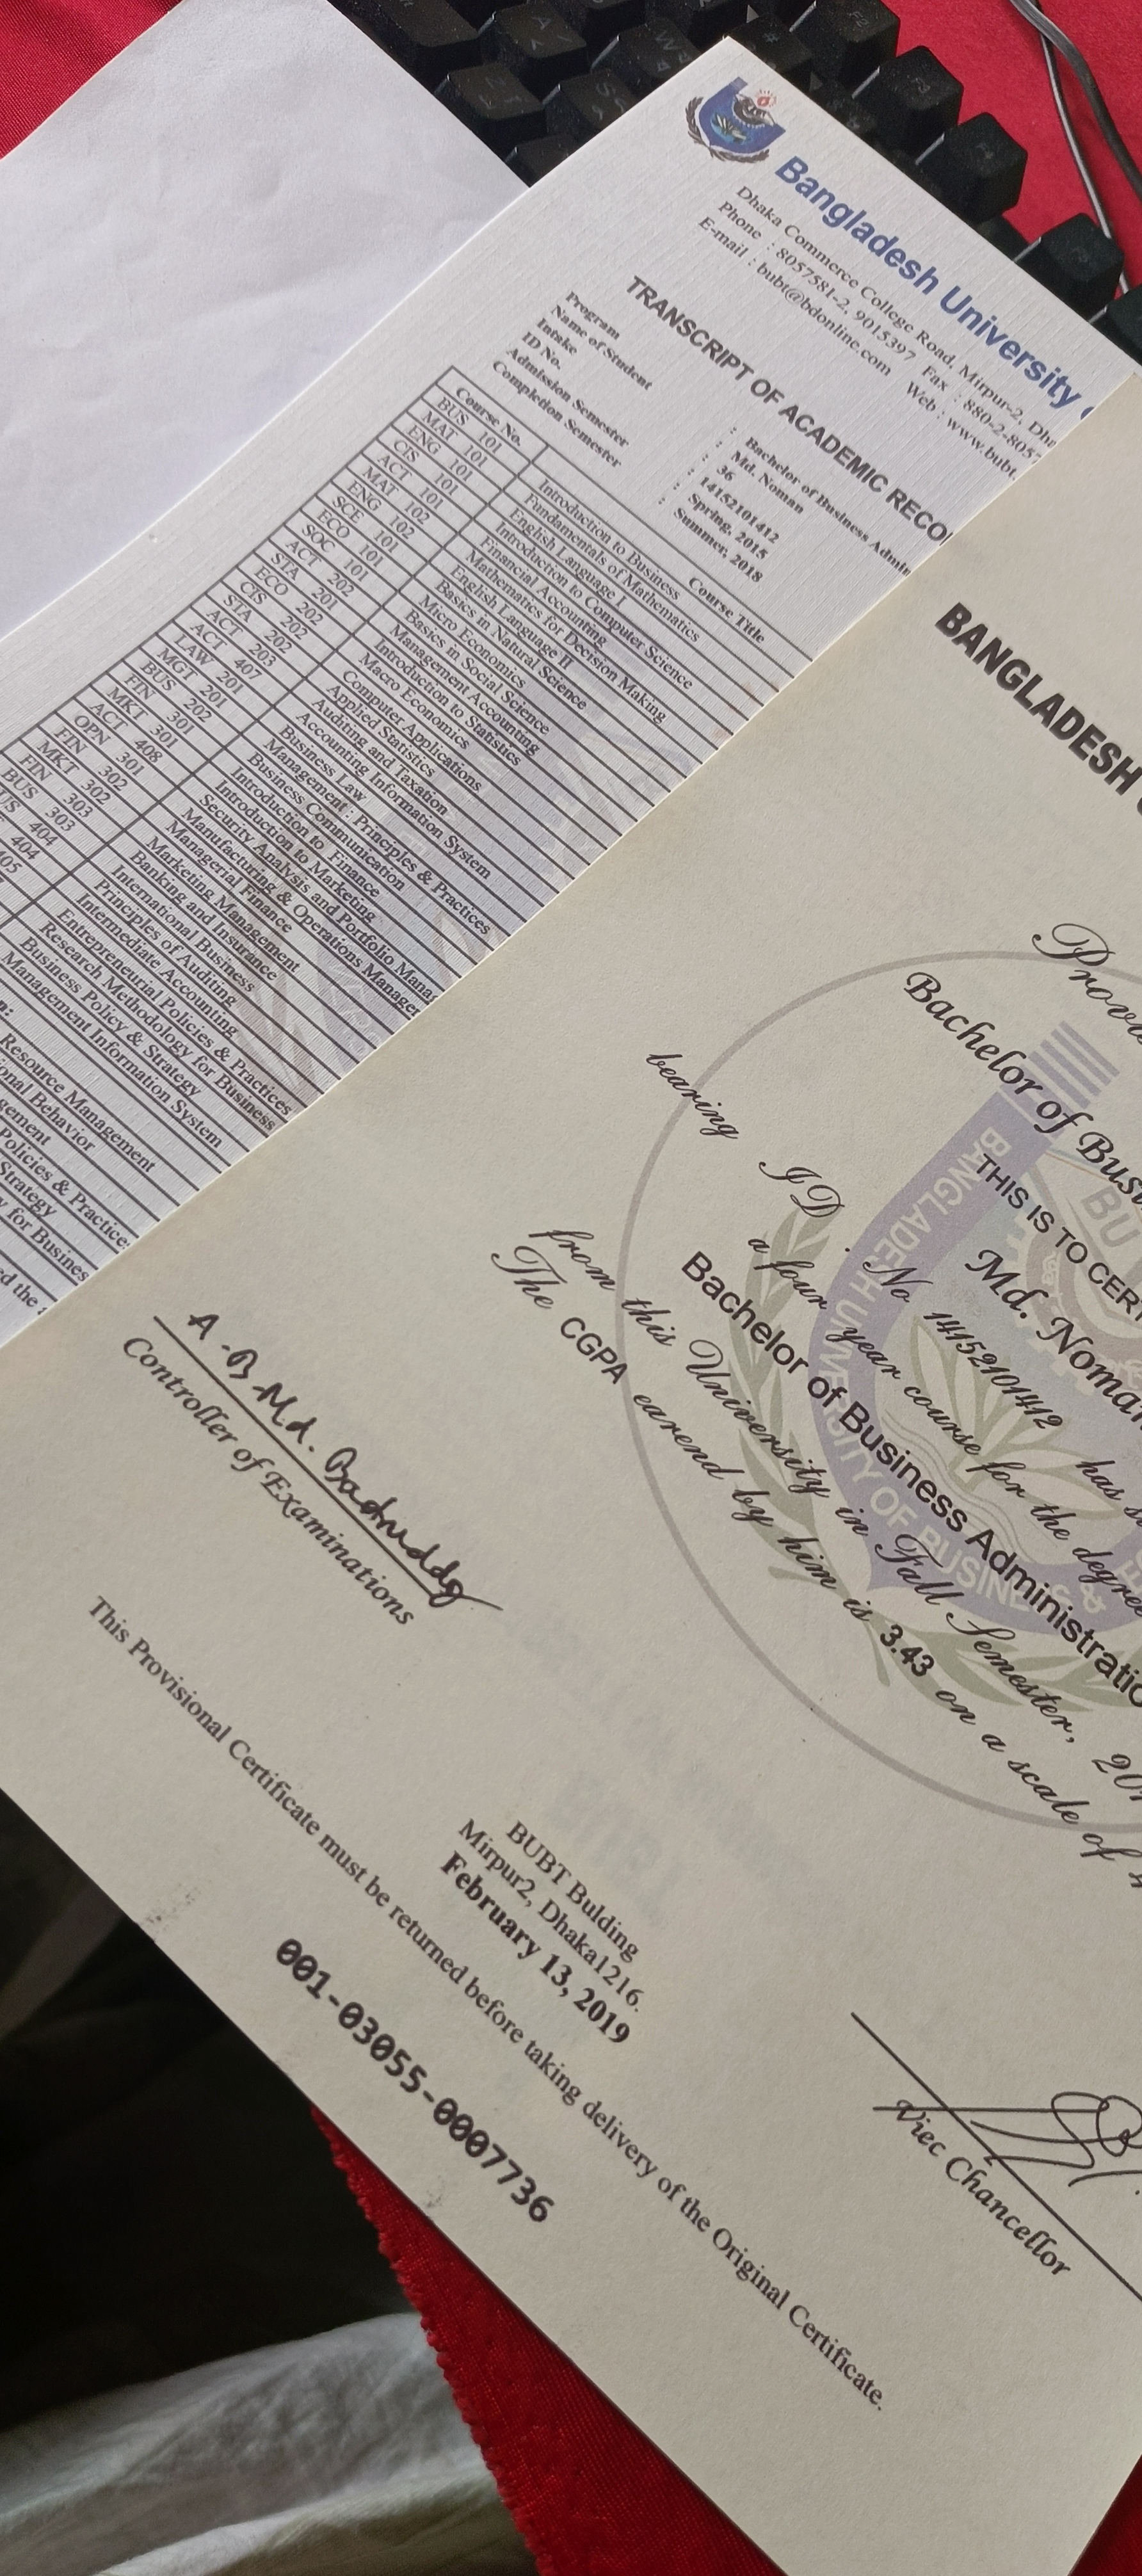 Bangladesh University
Dhaka Commerce College Road, Mirpur-2, Dha
Phone : 8057581-2, 9015397 Fax : 880-2-8057
E-mail : bubt@bdonline.com Web : www.bubt.
TRANSCRIPT OF ACADEMIC RECO
Program : Bachelor of Business Admin
Name of Student : Md. Noman
Intake : 36
ID No. : 14152101412
Admission Semester : Spring, 2015
Completion Semester : Summer, 2018
Course No. Course Title
BUS 101 Introduction to Business
MAT 101 Fundamentals of Mathematics
ENG 101 English Language I
CIS 101 Introduction to Computer Science
ACT 101 Financial Accounting
MAT 102 Mathematics for Decision Making
ENG 102 English Language II
SCE 101 Basics in Natural Science
ECO 101 Micro Economics
SOC 101 Basics in Social Science
ACT 202 Management Accounting
STA 201 Introduction to Statistics
ECO 202 Macro Economics
CIS 202 Computer Applications
STA 202 Applied Statistics
ACT 203 Auditing and Taxation
ACT 407 Accounting Information System
LAW 201 Business Law
MGT 201 Management : Principles & Practices
BUS 202 Business Communication
FIN 301 Introduction to Finance
MKT 301 Introduction to Marketing
ACT 408 Security Analysis and Portfolio Mana
OPN 301 Manufacturing & Operations Manager
FIN 302 Managerial Finance
MKT 302 Marketing Management
FIN 303 Banking and Insurance
BUS 303 International Business
US 404 Principles of Auditing
404 Intermediate Accounting
405 Entrepreneurial Policies & Practices
Research Methodology for Business
Business Policy & Strategy
Management Information System
n:
Resource Management
ional Behavior
gement
Policies & Practice
Strategy
y for Busines
ed the
BANGLADESH
Provi
Bachelor of Busi
THIS IS TO CERT
Md. Noman
bearing ID. No 14152101412 has s
a four year course for the degree
Bachelor of Business Administratio
from this University in Fall Semester, 201
The CGPA earend by him is 3.43 on a scale of
BANGLADESH UNIVERSITY OF BUSINESS &
BU
A.B.Md. Badrudd
Controller of Examinations
BUBT Bulding
Mirpur2, Dhaka1216.
February 13, 2019
Viec Chancellor
This Provisional Certificate must be returned before taking delivery of the Original Certificate.
001-03055-0007736